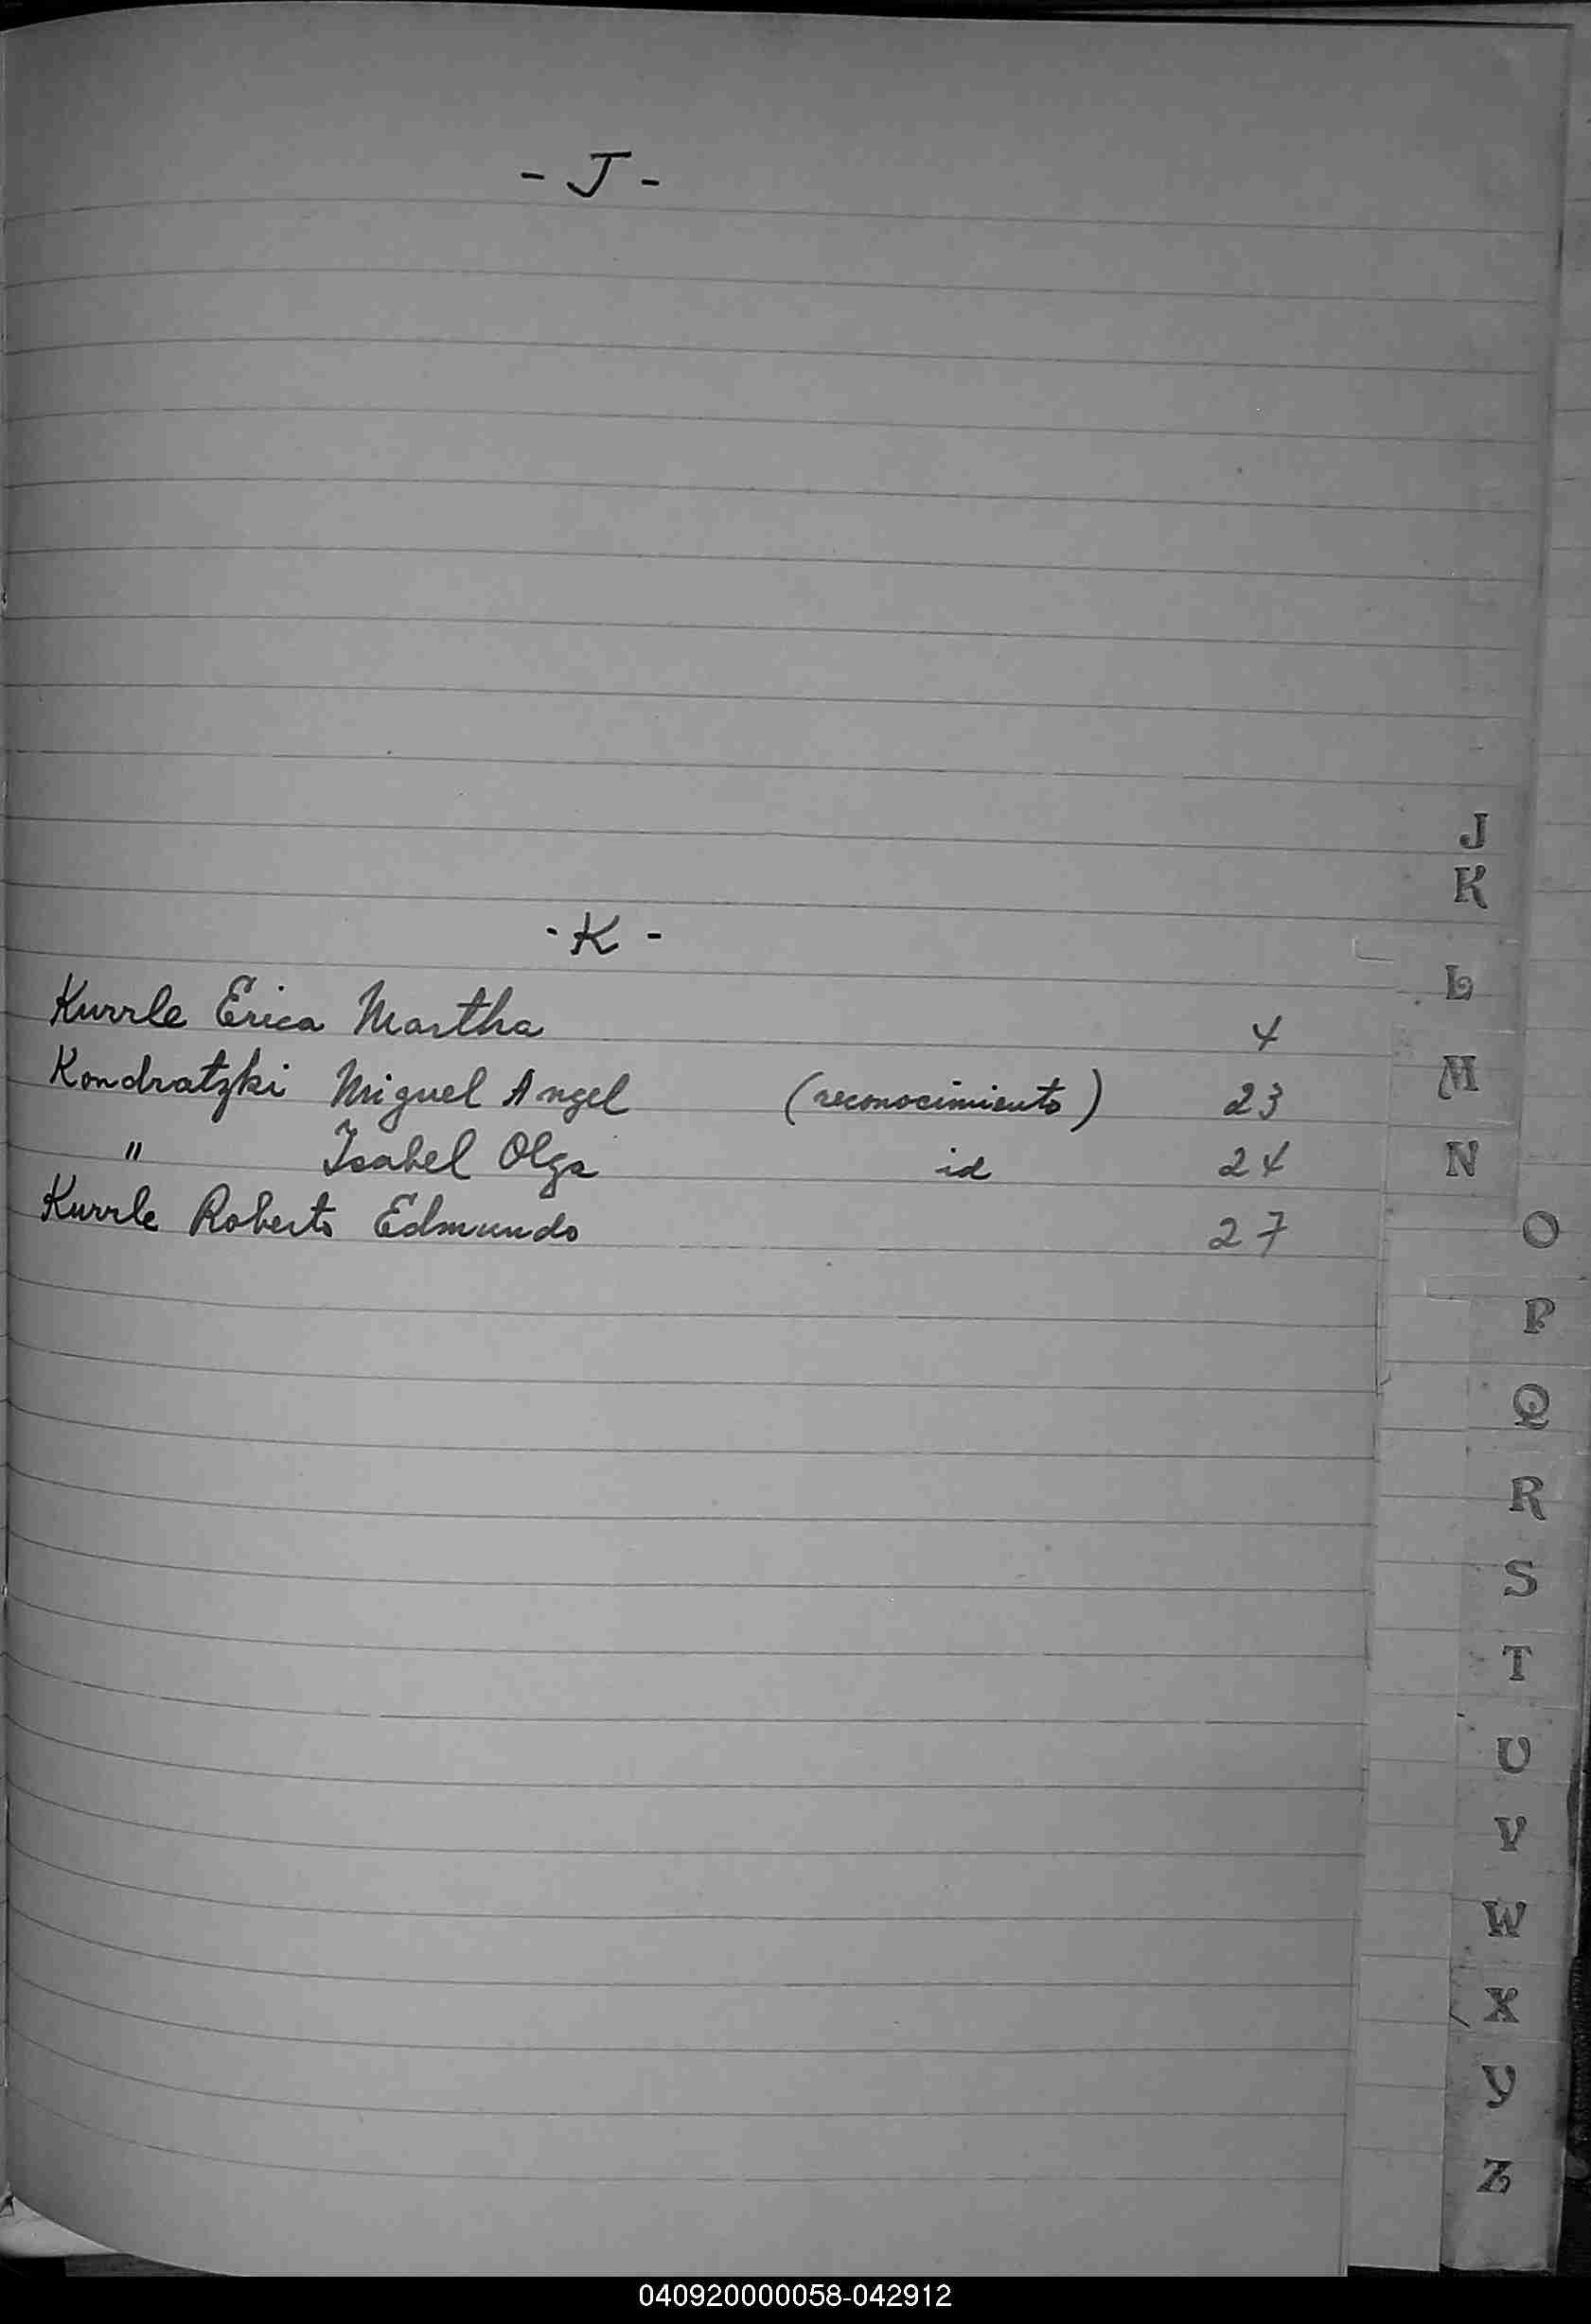 - J -
- K -
Kurrle Erica Martha 4
Kondratzki Miguel Angel (reconocimiento) 23
" Isabel Olga id 24
Kurrle Roberto Edmundo 27
J
K
L
M
N
O
P
Q
R
S
T
U
V
W
X
Y
Z
040920000058-042912